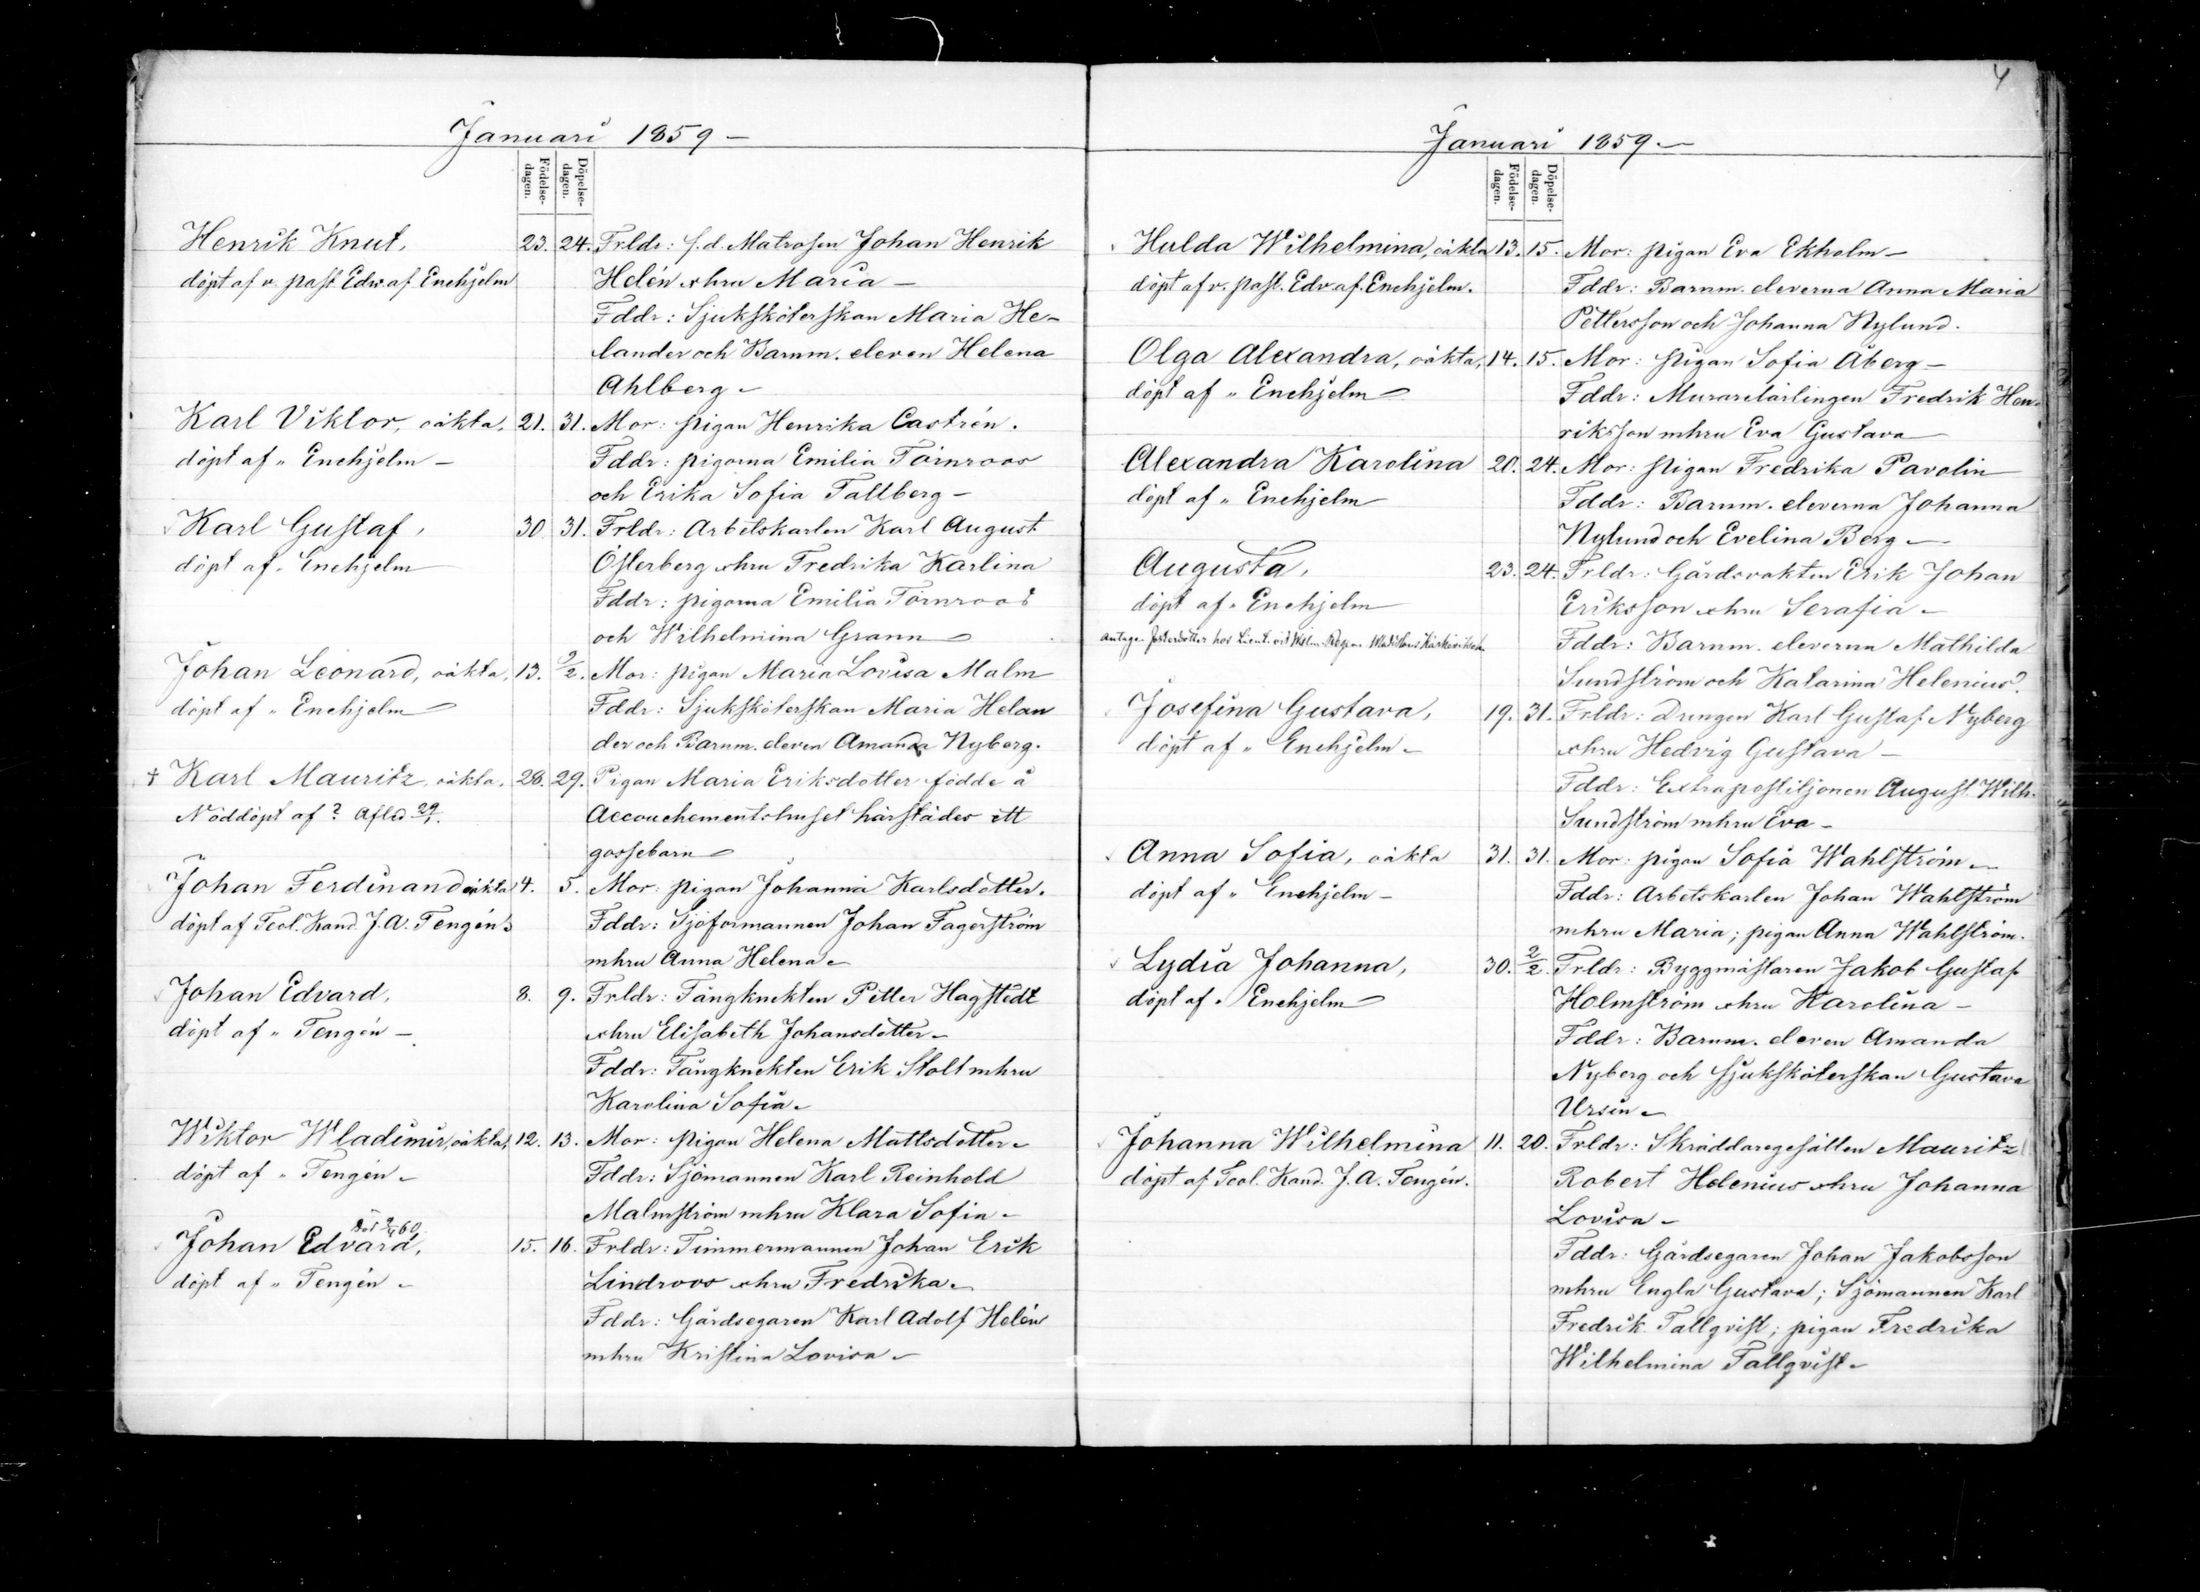 4
Januari 1859 –
Födelse-dagen. Döpelse-dagen.
Henrik Knut, 23. 24. Frldr: f.d. Matrosen Johan Henrik
döpt af v. past. Edv. af Enehjelm Helén o. hru Maria –
Fddr: Sjuksköterskan Maria He-
lander och Barnm. eleven Helena
Ahlberg –
Karl Viktor, oäkta, 21. 31. Mor: pigan Henrika Castrén.
döpt af " Enehjelm – Fddr: pigorna Emilia Törnroos
och Erika Sofia Tallberg –
Karl Gustaf, 30 31. Frldr: Arbetskarlen Karl August
döpt af " Enehjelm Österberg o. hru Fredrika Karlina
Fddr: pigorna Emilia Törnroos
och Wilhelmina Grann –
Johan Leonard, oäkta, 13. 2/2. Mor: pigan Maria Lovisa Malm
döpt af " Enehjelm Fddr: Sjuksköterskan Maria Helan
der och Barnm. eleven Amanda Nyberg.
† Karl Mauritz, oäkta, 28. 29. Pigan Maria Eriksdotter födde å
Nöddöpt af ? Afled 29/1. Accouchementshuset härstädes ett
gossebarn –
Johan Ferdinand oäkta 4. 5. Mor: pigan Johanna Karlsdotter.
döpt af Teol. Kand. J. A. Tengén Fddr: Sjöformannen Johan Fagerström
m hru Anna Helena –
Johan Edvard, 8. 9. Frldr: Fångknekten Petter Hagstedt
döpt af " Tengén – o. hru Elisabeth Johansdotter –
Fddr: Fångknekten Erik Stolt m hru
Karolina Sofia –
Wiktor Wladimir, oäkta, 12. 13. Mor: pigan Helena Mattsdotter –
döpt af " Tengén – Fddr: Sjömannen Karl Reinhold
Malmström m hru Klara Sofia –
Johan Edvard, 15. 16. Frldr: Timmermannen Johan Erik
döpt af " Tengén – Lindroos o. hru Fredrika –
Fddr: Gårdsegaren Karl Adolf Helén
m hru Kristina Lovisa –
Januari 1859 –
Födelse-dagen. Döpelse-dagen.
Hulda Wilhelmina, oäkta 13. 15. Mor: pigan Eva Ekholm –
döpt af v. past. Edv. af Enehjelm. Fddr: Barnm. eleverna Anna Maria
Pettersson och Johanna Nylund.
Olga Alexandra, oäkta, 14. 15. Mor: pigan Sofia Åberg –
döpt af " Enehjelm – Fddr: Murarelärlingen Fredrik Hen-
riksson m hru Eva Gustava
Alexandra Karolina 20. 24. Mor: pigan Fredrika Pavolin
döpt af " Enehjelm Fddr: Barnm. eleverna Johanna
Nylund och Evelina Berg –
Augusta, 23. 24. Frldr: Gårdsvakten Erik Johan
döpt af " Enehjelm Eriksson o. hru Serafia –
antage. fosterdotter hos Lieut. vid Fddr: Barnm. eleverna Mathilda
Sundström och Katarina Helenius.
Josefina Gustava, 19. 31. Frldr: Drengen Karl Gustaf Nyberg
döpt af " Enehjelm – o. hru Hedvig Gustava –
Fddr: Extrapostiljonen August Wilh.
Sundström m hru Eva –
Anna Sofia, oäkta 31. 31. Mor: pigan Sofia Wahlström –
döpt af " Enehjelm – Fddr: Arbetskarlen Johan Wahlström
m hru Maria; pigan Anna Wahlström.
Lydia Johanna, 30. 2/2. Frldr: Byggmästaren Jakob Gustaf
döpt af " Enehjelm Holmström o. hru Karolina –
Fddr: Barnm. eleven Amanda
Nyberg och sjuksköterskan Gustava
Ursin –
Johanna Wilhelmina 11. 20. Frldr: Skräddaregesällen Mauritz
döpt af Teol. Kand. J. A. Tengén. Robert Helenius o. hru Johanna
Lovisa –
Fddr: Gårdsegaren Johan Jakobsson
m hru Engla Gustava; Sjömannen Karl
Fredrik Tallqvist; pigan Fredrika
Wilhelmina Tallqvist –